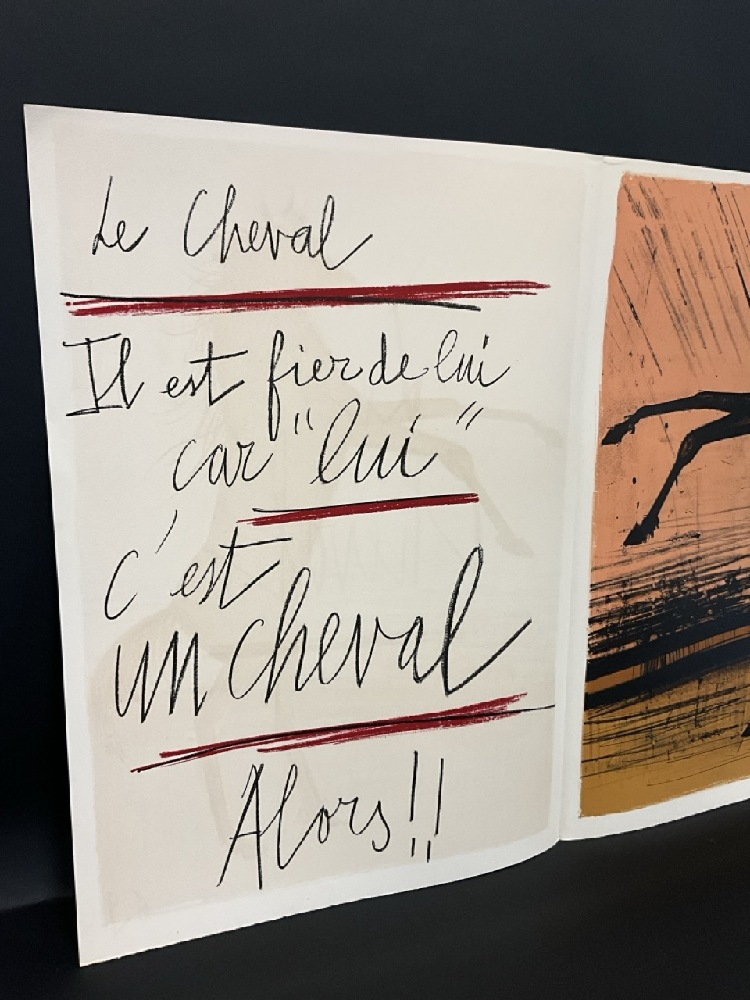 Le Cheval
Il est fier de lui
car "lui"
c'est
un cheval
Alors!!